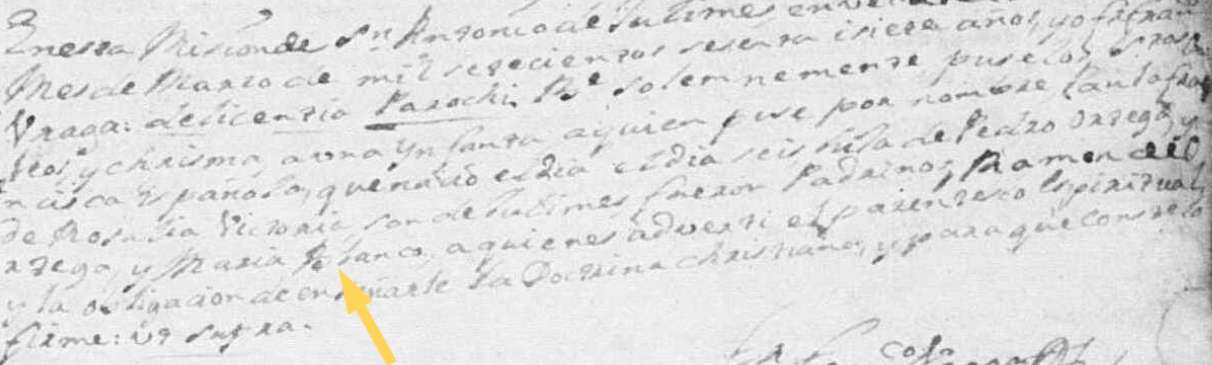 En esta Mision de Sn Antonio de Sutimes en
Mes de Marzo de mil setecientos sesenta i siete años, yo fr fran
Vraga: de licenzia Parochi, Bse solemnemente puse los stos
leos y chrisma, a una Ynfanta a quien puse por nombre Paula fran
cisca Española, que nació el dia seis hija de Pedro Ortega, y
de Rosalia Victoria, son de Sutimes fueron Padrinos Ramon de
rtega, y Maria Blanco, a quienes adverti el parentesco Espiritual,
y la obligacion de enseñarle la Doctrina christiana, y para que conste lo
firme: ut supra.